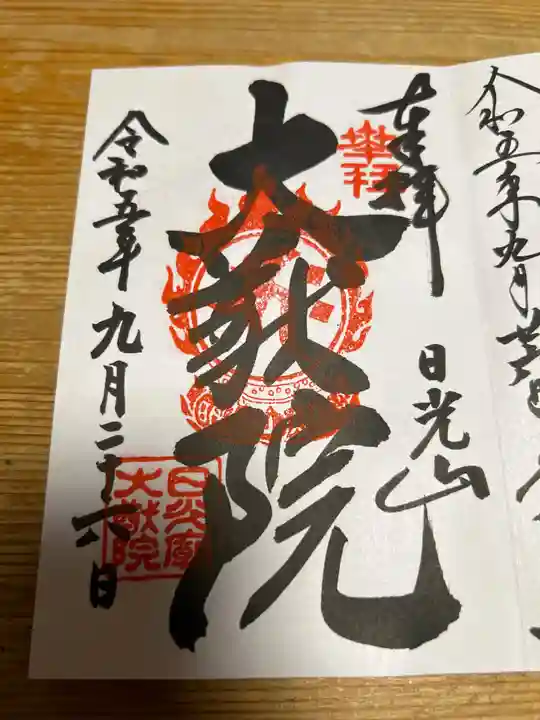 奉拝
奉拝
日光山
大猷院
日光廟
大猷院
令和五年九月二十六日
令和五年九月